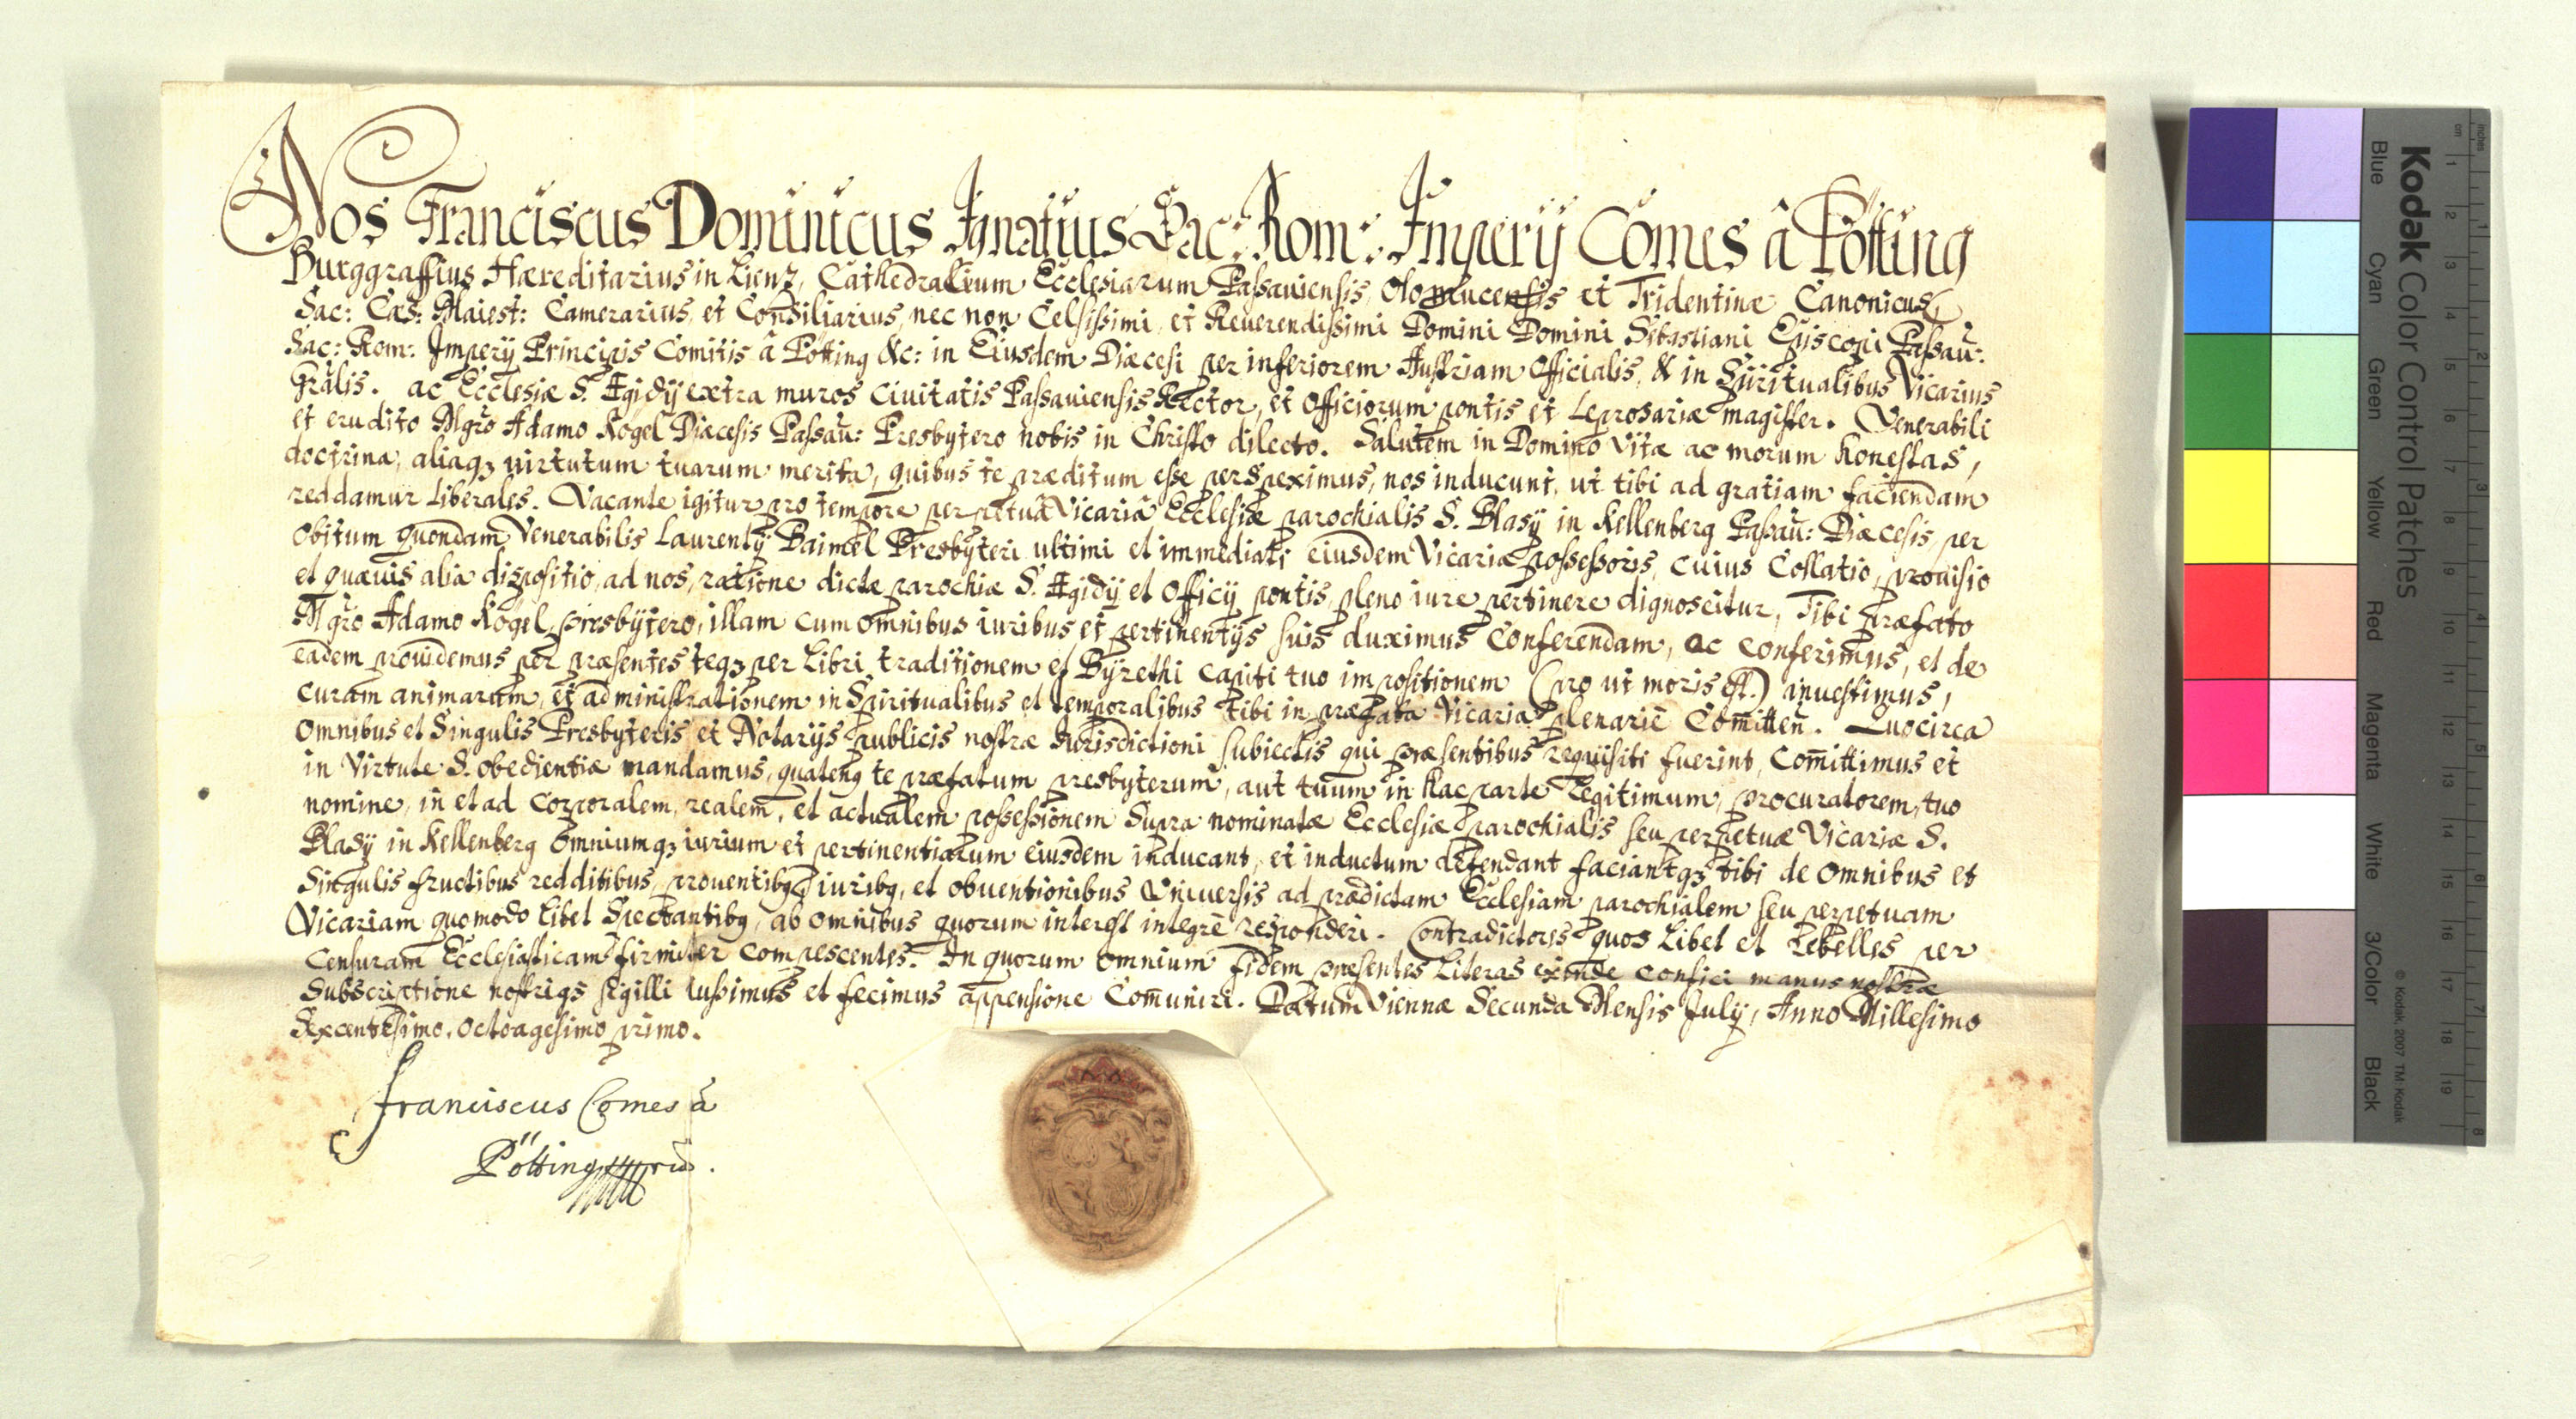 Nos Franciscus Dominicus Ignatius Sac: Rom: Imperij Comes â Pötting
Burggraffius Hæreditarius in Lienz, Cathedralium Ecclesiarum Passauiensis, Olomucensis et Tridentinæ Canonicus,
Sac: Cæs: Maiest: Camerarius, et Consiliarius, nec non Celsissimi, et Reuerendissimi Domini Domini Sebastiani Episcopi Passau:
Sac: Rom: Imperij Principis Comitis â Pötting &c: in Eiusdem Diæcesi per inferiorem Austriam Officialis, & in Spiritualibus Vicarius
Grãlis. ac Ecclesiæ S. Ægidij extra muros Ciuitatis Passauiensis Rector, et Officiorum pontis et Leprosariæ magister. Venerabili
et erudito Mgrõ Adamo Kögel Diæcesis Passau: Presbytero nobis in Christo dilecto. Salutem in Domino Vitæ ac morum honestas,
doctrina, aliaqȝ uirtutum tuarum merita, quibus te præditum esse perspeximus, nos inducunt, ut tibi ad gratiam faciendam
reddamur liberales. Vacante igitur pro tempore perpetuâ Vicariâ Ecclesiæ parochialis S. Blasij in Kellenberg Passau: Diæcesis, per
obitum quondam Venerabilis Laurentij Baimel Presbyteri ultimi et immediati eiusdem Vicariæ possessoris, cuius Collatio, prouisio
et quæuis alia dispositio, ad nos, ratione dictæ parochiæ S. Ægidij et Officij pontis, pleno iure pertinere dignoscitur, Tibi præfato
Mgrõ Adamo Kögel, presbytero, illam cum omnibus iuribus et pertinentijs suis duximus Conferendam, ac conferimus, et de
eadem prouidemus per præsentes, teqȝ per Libri traditionem et Byrethi capiti tuo impositionem (pro ut moris est.) inuestimus,
curam animarum, et administrationem in Spiritualibus et temporalibus tibi in præfata Vicaria plenariè Com̃itteñ. Quocirca
Omnibus et Singulis Presbyteris et Notarijs publicis nostræ Jurisdictioni subiectis qui præsentibus requisiti fuerint, Com̃ittimus et
in Virtute S. obedientiæ mandamus, quatenq te præfatum presbyterum, aut tuum in hac parte legitimum, procuratorem, tuo
nomine, in et ad Corporalem, realem, et actualem possessionem supra nominatæ Ecclesiæ parochialis seu perpetuæ Vicariæ S.
Blasij in Kellenberg omniumqȝ iurium et pertinentiarum eiusdem inducant, et inductum defendant faciantqȝ tibi de Omnibus et
Singulis fructibus redditibus, prouentibq, iuribq, et obuentionibus Vniuersis ad prædictam Ecclesiam parochialem seu perpetuam
Vicariam quomodo libet Spectantibq, ab omnibus quorum interest integrè responderi. Contradictores quos libet et rebelles per
Censuram Ecclesiasticam firmiter compescentes. In quorum omnium fidem præsentes Literas exinde confici manus nostræ
Subscriptione nostriqȝ sigilli iussimus et fecimus appensione Com̃uniri. Datum Viennæ Secunda Mensis Julij, Anno Millesimo
Sexcentesimo, octoagesimo primo.
Franciscus Comes â
Pötting
Kodak Color Control Patches
Blue Cyan Green Yellow Red Magenta White 3/Color Black
© Kodak, 2007 TM: Kodak
inches 1 2 3 4 5 6 7 8
cm 1 2 3 4 5 6 7 8 9 10 11 12 13 14 15 16 17 18 19